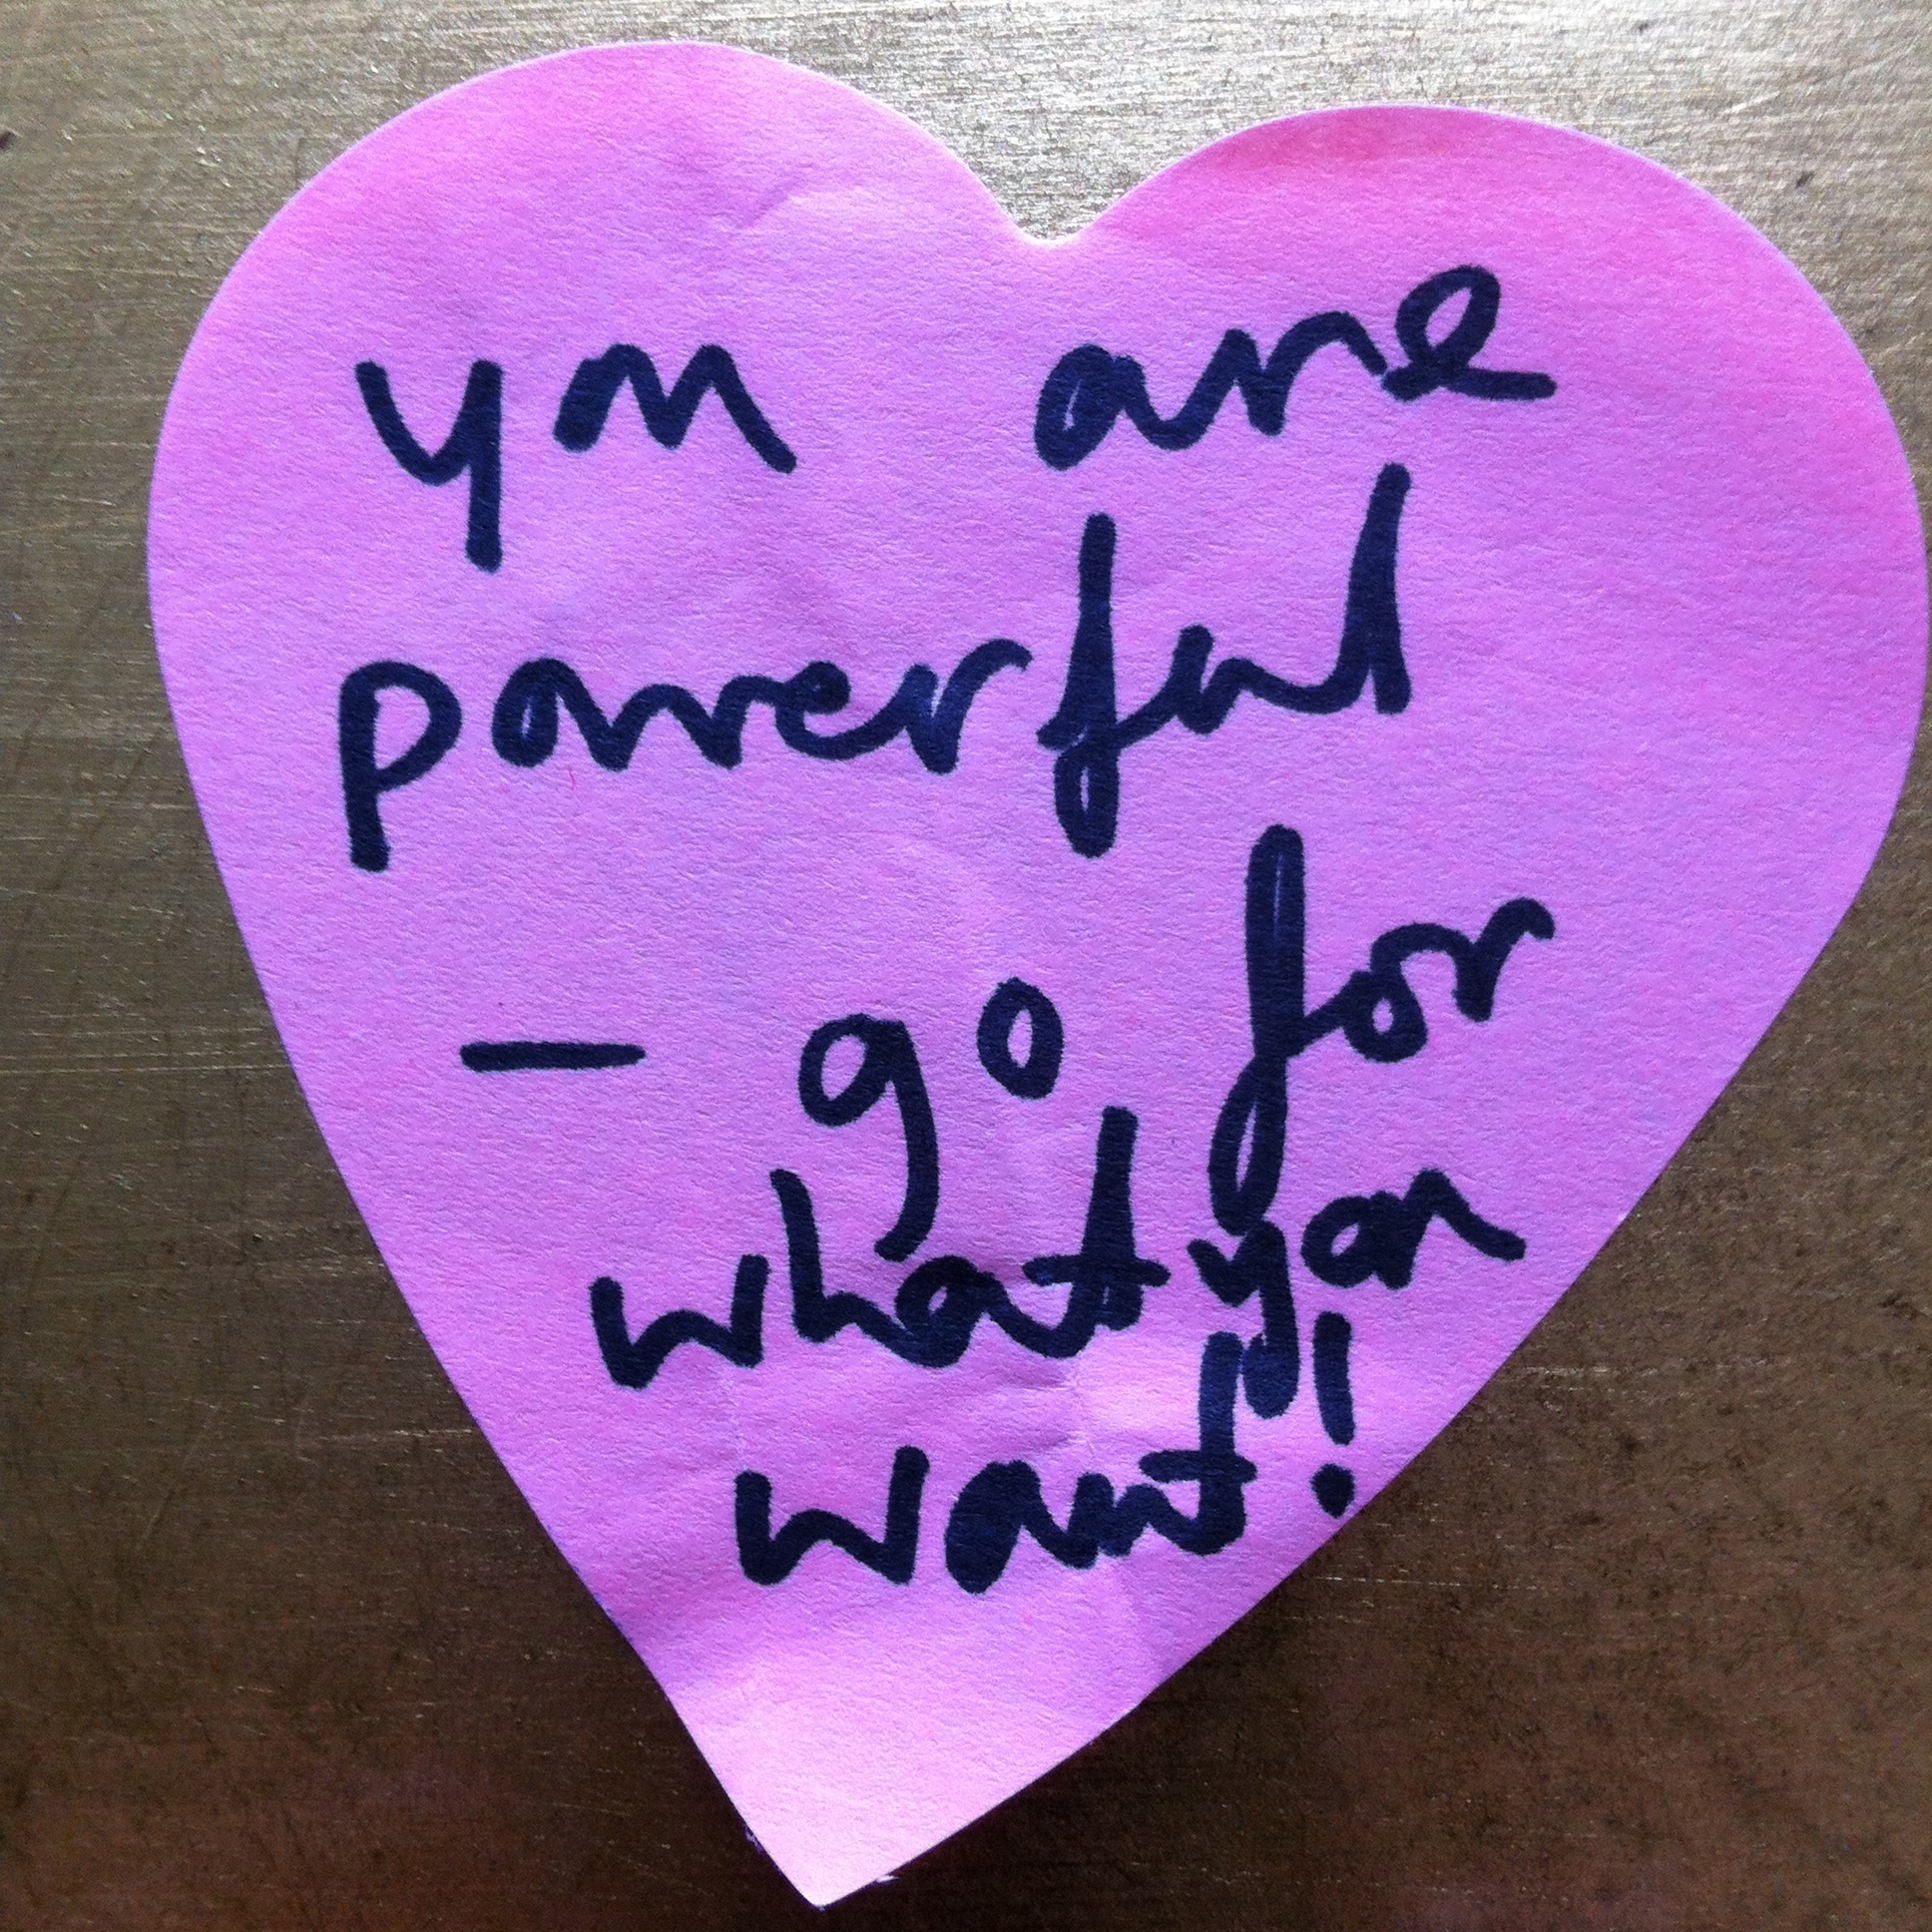 you are
powerful
– go for
what you
want!